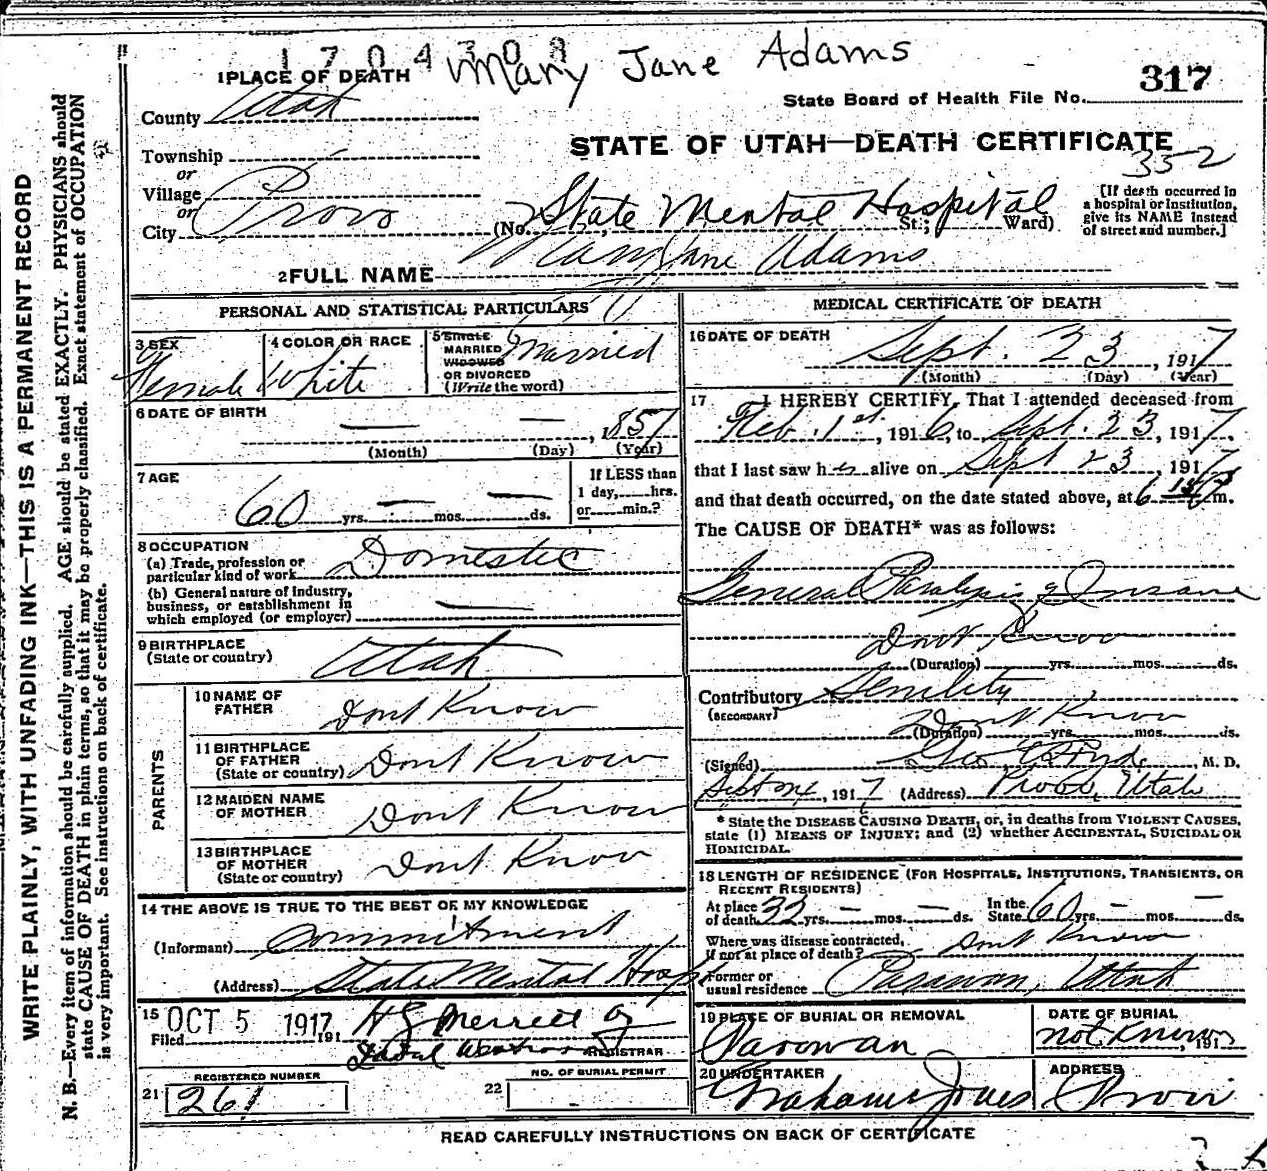 1704308
Mary Jane Adams
1 PLACE OF DEATH
317
State Board of Health File No.
County Utah
STATE OF UTAH—DEATH CERTIFICATE
352
Township
or
Village
or
City Provo
(No. State Mental Hospital St.; Ward)
[If death occurred in
a hospital or institution,
give its NAME instead
of street and number.]
2 FULL NAME Mary Jane Adams
PERSONAL AND STATISTICAL PARTICULARS
3 SEX
Female
4 COLOR OR RACE
White
5 SINGLE
MARRIED
WIDOWED
OR DIVORCED
(Write the word)
Married
6 DATE OF BIRTH
— — , 1857
(Month) (Day) (Year)
7 AGE
60 yrs. — mos. — ds.
If LESS than
1 day, hrs.
or min.?
8 OCCUPATION
(a) Trade, profession or
particular kind of work Domestic
(b) General nature of industry,
business, or establishment in
which employed (or employer) —
9 BIRTHPLACE
(State or country) Utah
PARENTS
10 NAME OF
FATHER Dont Know
11 BIRTHPLACE
OF FATHER
(State or country) Dont Know
12 MAIDEN NAME
OF MOTHER Dont Know
13 BIRTHPLACE
OF MOTHER
(State or country) Dont Know
14 THE ABOVE IS TRUE TO THE BEST OF MY KNOWLEDGE
(Informant) Commitment
(Address) State Mental Hosp
15
Filed OCT 5 1917, 191
H G Merrell
REGISTRAR
REGISTERED NUMBER
21 261
NO. OF BURIAL PERMIT
22
MEDICAL CERTIFICATE OF DEATH
16 DATE OF DEATH
Sept. 23, 1917
(Month) (Day) (Year)
17 I HEREBY CERTIFY, That I attended deceased from
Feb. 1st, 1916, to Sept. 23, 1917,
that I last saw her alive on Sept 23, 1917
and that death occurred, on the date stated above, at 6 m.
The CAUSE OF DEATH* was as follows:
General Paralysis of Insane
Dont Know
(Duration) yrs. mos. ds.
Contributory Senility
(SECONDARY)
Dont Know
(Duration) yrs. mos. ds.
(Signed) Geo. E. Hyde, M. D.
Sept 24, 1917 (Address) Provo, Utah
* State the DISEASE CAUSING DEATH, or, in deaths from VIOLENT CAUSES,
state (1) MEANS OF INJURY; and (2) whether ACCIDENTAL, SUICIDAL OR
HOMICIDAL.
18 LENGTH OF RESIDENCE (FOR HOSPITALS, INSTITUTIONS, TRANSIENTS, OR
RECENT RESIDENTS)
At place
of death 32 yrs. — mos. — ds.
In the
State 60 yrs. — mos. — ds.
Where was disease contracted,
if not at place of death? Dont Know
Former or
usual residence Parowan, Utah
19 PLACE OF BURIAL OR REMOVAL
Parowan
DATE OF BURIAL
not known, 191
20 UNDERTAKER
Graham Jones
ADDRESS
Provo
READ CAREFULLY INSTRUCTIONS ON BACK OF CERTIFICATE
WRITE PLAINLY, WITH UNFADING INK—THIS IS A PERMANENT RECORD
N. B.—Every item of information should be carefully supplied. AGE should be stated EXACTLY. PHYSICIANS should
state CAUSE OF DEATH in plain terms, so that it may be properly classified. Exact statement of OCCUPATION
is very important. See instructions on back of certificate.